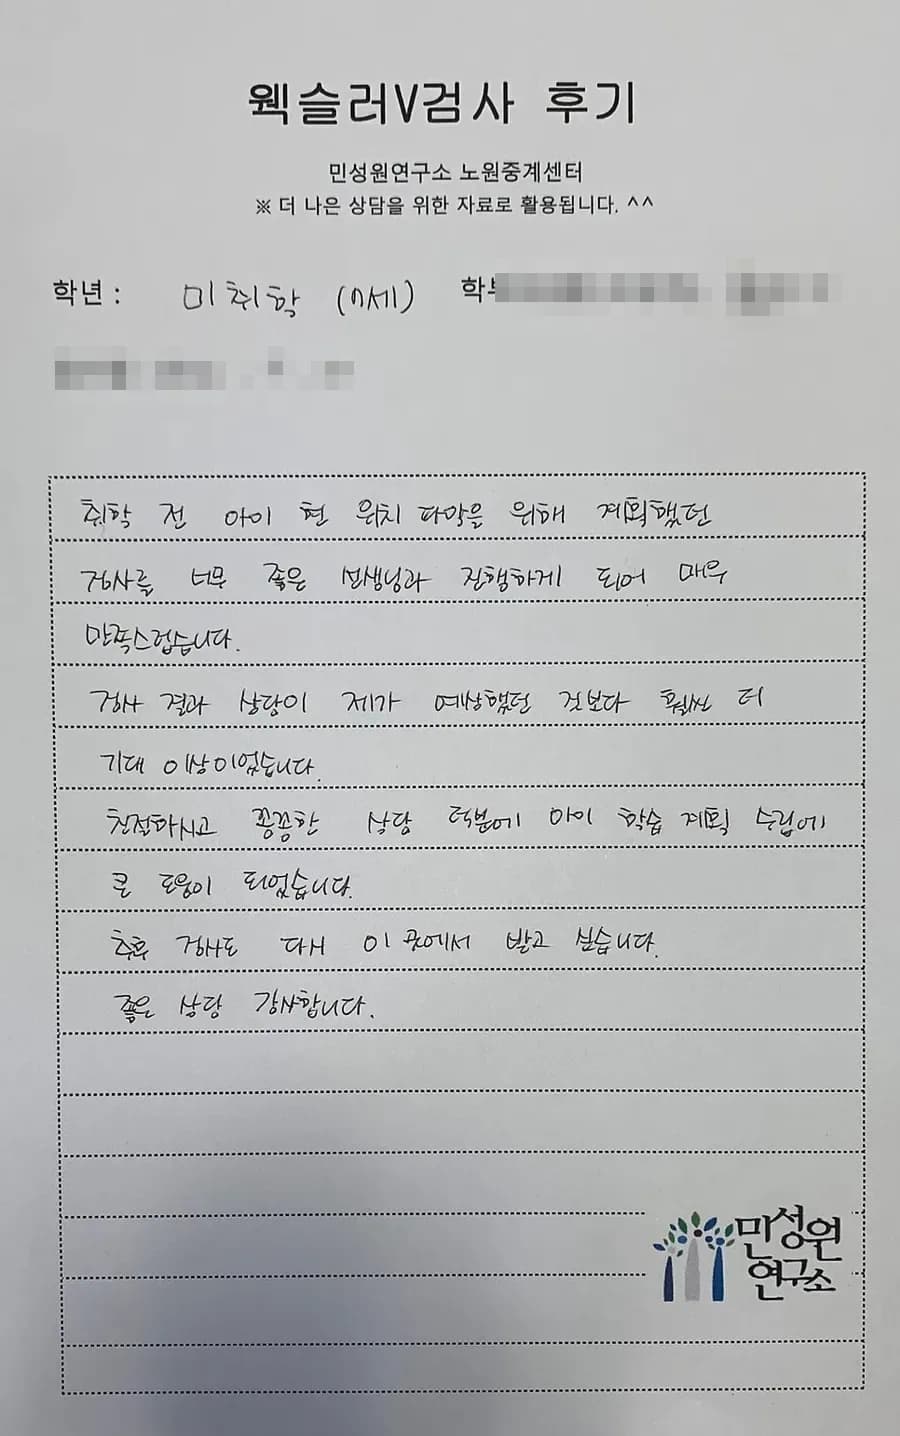 웩슬러V검사 후기
민성원연구소 노원중계센터
※ 더 나은 상담을 위한 자료로 활용됩니다. ^^
학년 : 미취학 (7세) 학부
취학 전 아이 현 위치 파악을 위해 계획했던
검사를 너무 좋은 선생님과 진행하게 되어 매우
만족스럽습니다.
검사 결과 상담이 제가 예상했던 것보다 훨씬 더
기대 이상이었습니다.
친절하시고 꼼꼼한 상담 덕분에 아이 학습 계획 수립에
큰 도움이 되었습니다.
추후 검사도 다시 이 곳에서 받고 싶습니다.
좋은 상담 감사합니다.
민성원
연구소